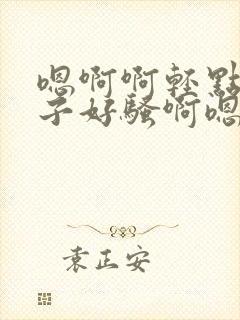 嗯啊啊轻點
子好騷啊嗯
袁正安